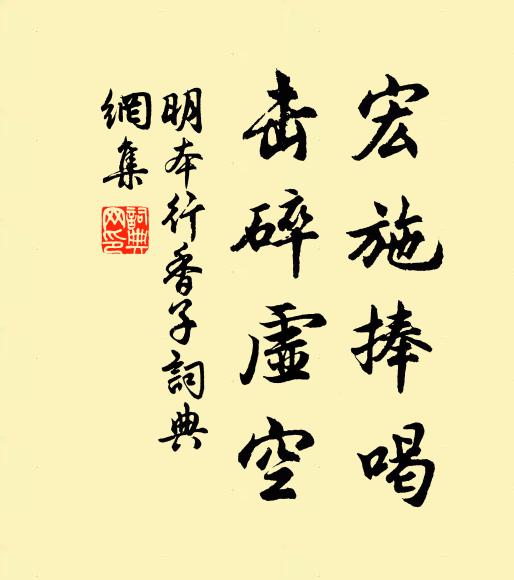 宏施捧喝
击碎虛空
明本行香子詞典
網集
詞典
网印